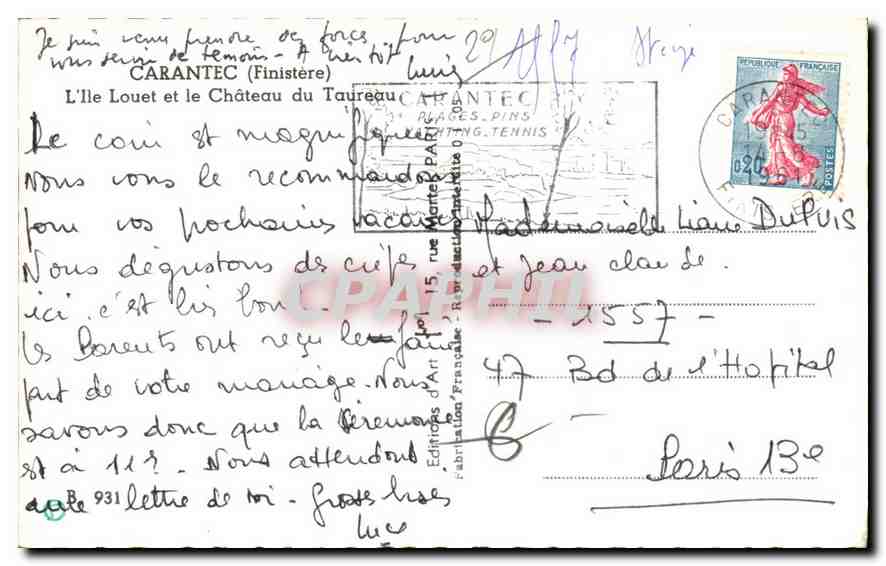 Je suis venu prendre des forces pour
vous servir de témoins - A bientôt
CARANTEC (Finistère)
L'Ile Louet et le Château du Taureau
Le coin est magnifique
Nous vous le recommandons
pour vos prochaines vacances
Nous dégustons des crêpes
ici. c'est très bon.
Les Parents ont reçu le faire
part de votre mariage. Nous
savons donc que la cérémonie
est à 11h. Nous attendons
une lettre de toi - Grosses bises
Luce
B. 931
29
CARANTEC
PLAGES-PINS
YACHTING-TENNIS
Editions d'Art 15, rue Martel, PARIS
Fabrication Française - Reproduction Interdite
REPUBLIQUE FRANÇAISE
0,20
POSTES
CARANTEC
1961
FINISTERE
Mademoiselle Liane DUPUIS
et Jean Claude.
- 1557 -
47 Bd de l'Hopital
Paris 13e
CPAPHIL